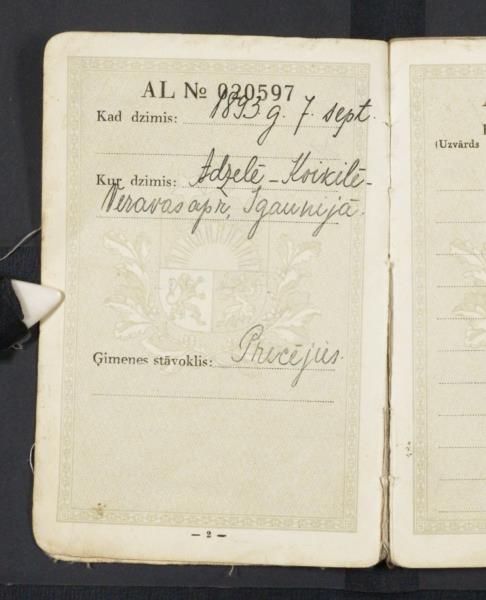 AL № 020597
Kad dzimis: 1893 g. 7. sept.
Kur dzimis: Adzelē - Koikilē -
Veravas apr., Igaunijā.
Ģimenes stāvoklis: Precējies.
— 2 —
(Uzvārds